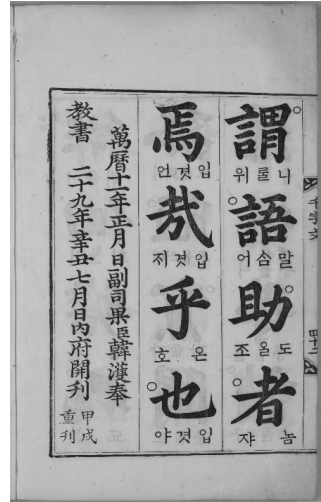 千字文 四十二
謂 니롤 위
語 말솜 어
助 도올 조
者 놈 쟈
焉 입겻 언
哉 입겻 지
乎 온 호
也 입겻 야
萬曆十一年正月日副司果臣韓濩奉
敎書 二十九年辛丑七月日內府開刊 甲戌
重刊